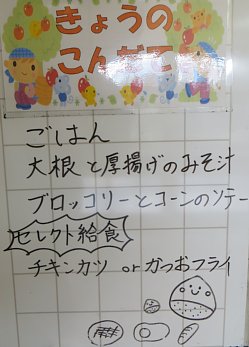 きょうの
こんだて
ごはん
大根と厚揚げのみそ汁
ブロッコリーとコーンのソテー
セレクト給食
チキンカツ orかつおフライ